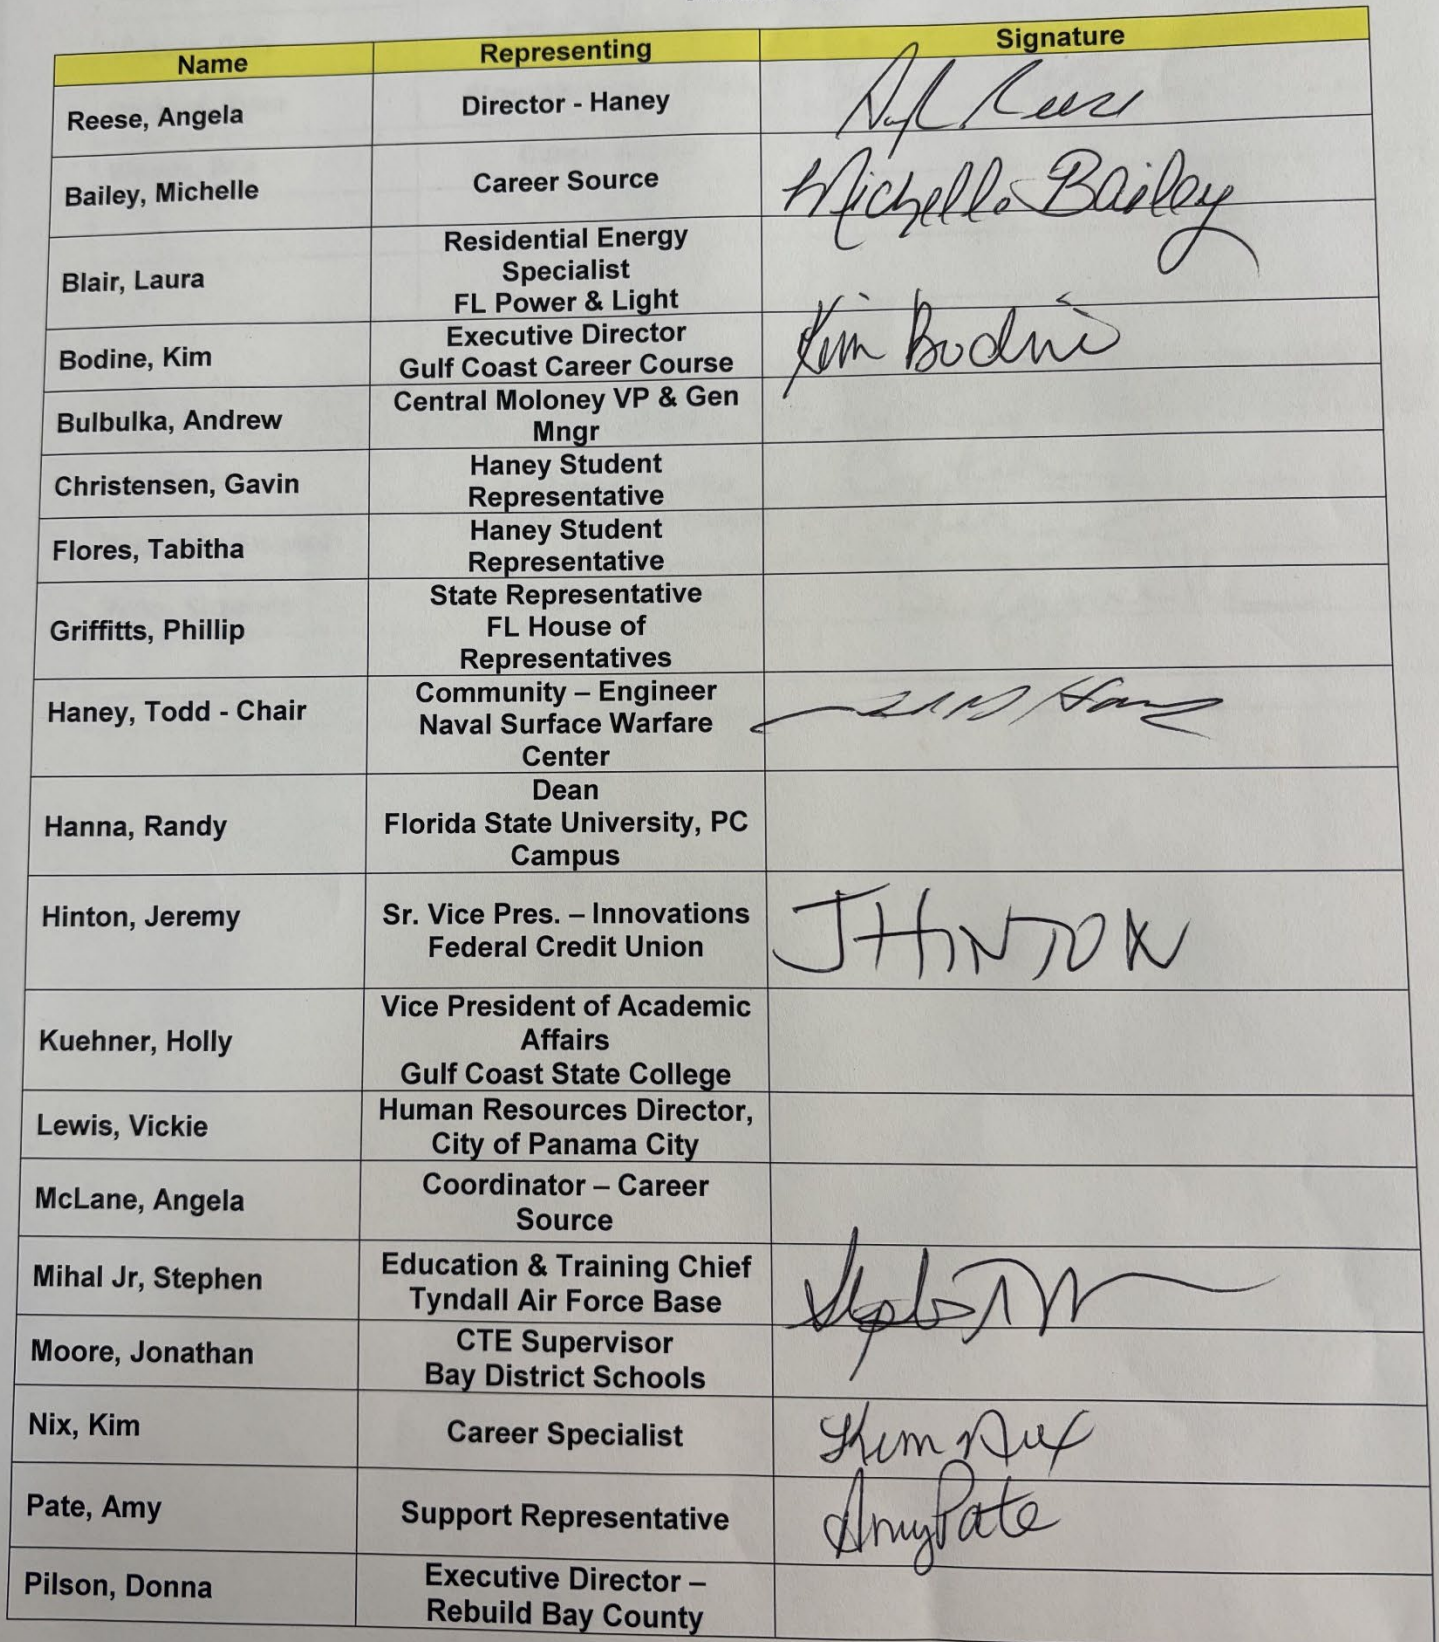 Name Representing Signature
Reese, Angela Director - Haney
Bailey, Michelle Career Source Michelle Bailey
Blair, Laura Residential Energy
Specialist
FL Power & Light
Bodine, Kim Executive Director Kim Bodine
Gulf Coast Career Course
Bulbulka, Andrew Central Moloney VP & Gen
Mngr
Christensen, Gavin Haney Student
Representative
Flores, Tabitha Haney Student
Representative
Griffitts, Phillip State Representative
FL House of
Representatives
Haney, Todd - Chair Community – Engineer
Naval Surface Warfare
Center
Hanna, Randy Dean
Florida State University, PC
Campus
Hinton, Jeremy Sr. Vice Pres. – Innovations J HINTON
Federal Credit Union
Kuehner, Holly Vice President of Academic
Affairs
Gulf Coast State College
Lewis, Vickie Human Resources Director,
City of Panama City
McLane, Angela Coordinator – Career
Source
Mihal Jr, Stephen Education & Training Chief
Tyndall Air Force Base
Moore, Jonathan CTE Supervisor
Bay District Schools
Nix, Kim Career Specialist Kim Nix
Pate, Amy Support Representative Amy Pate
Pilson, Donna Executive Director –
Rebuild Bay County